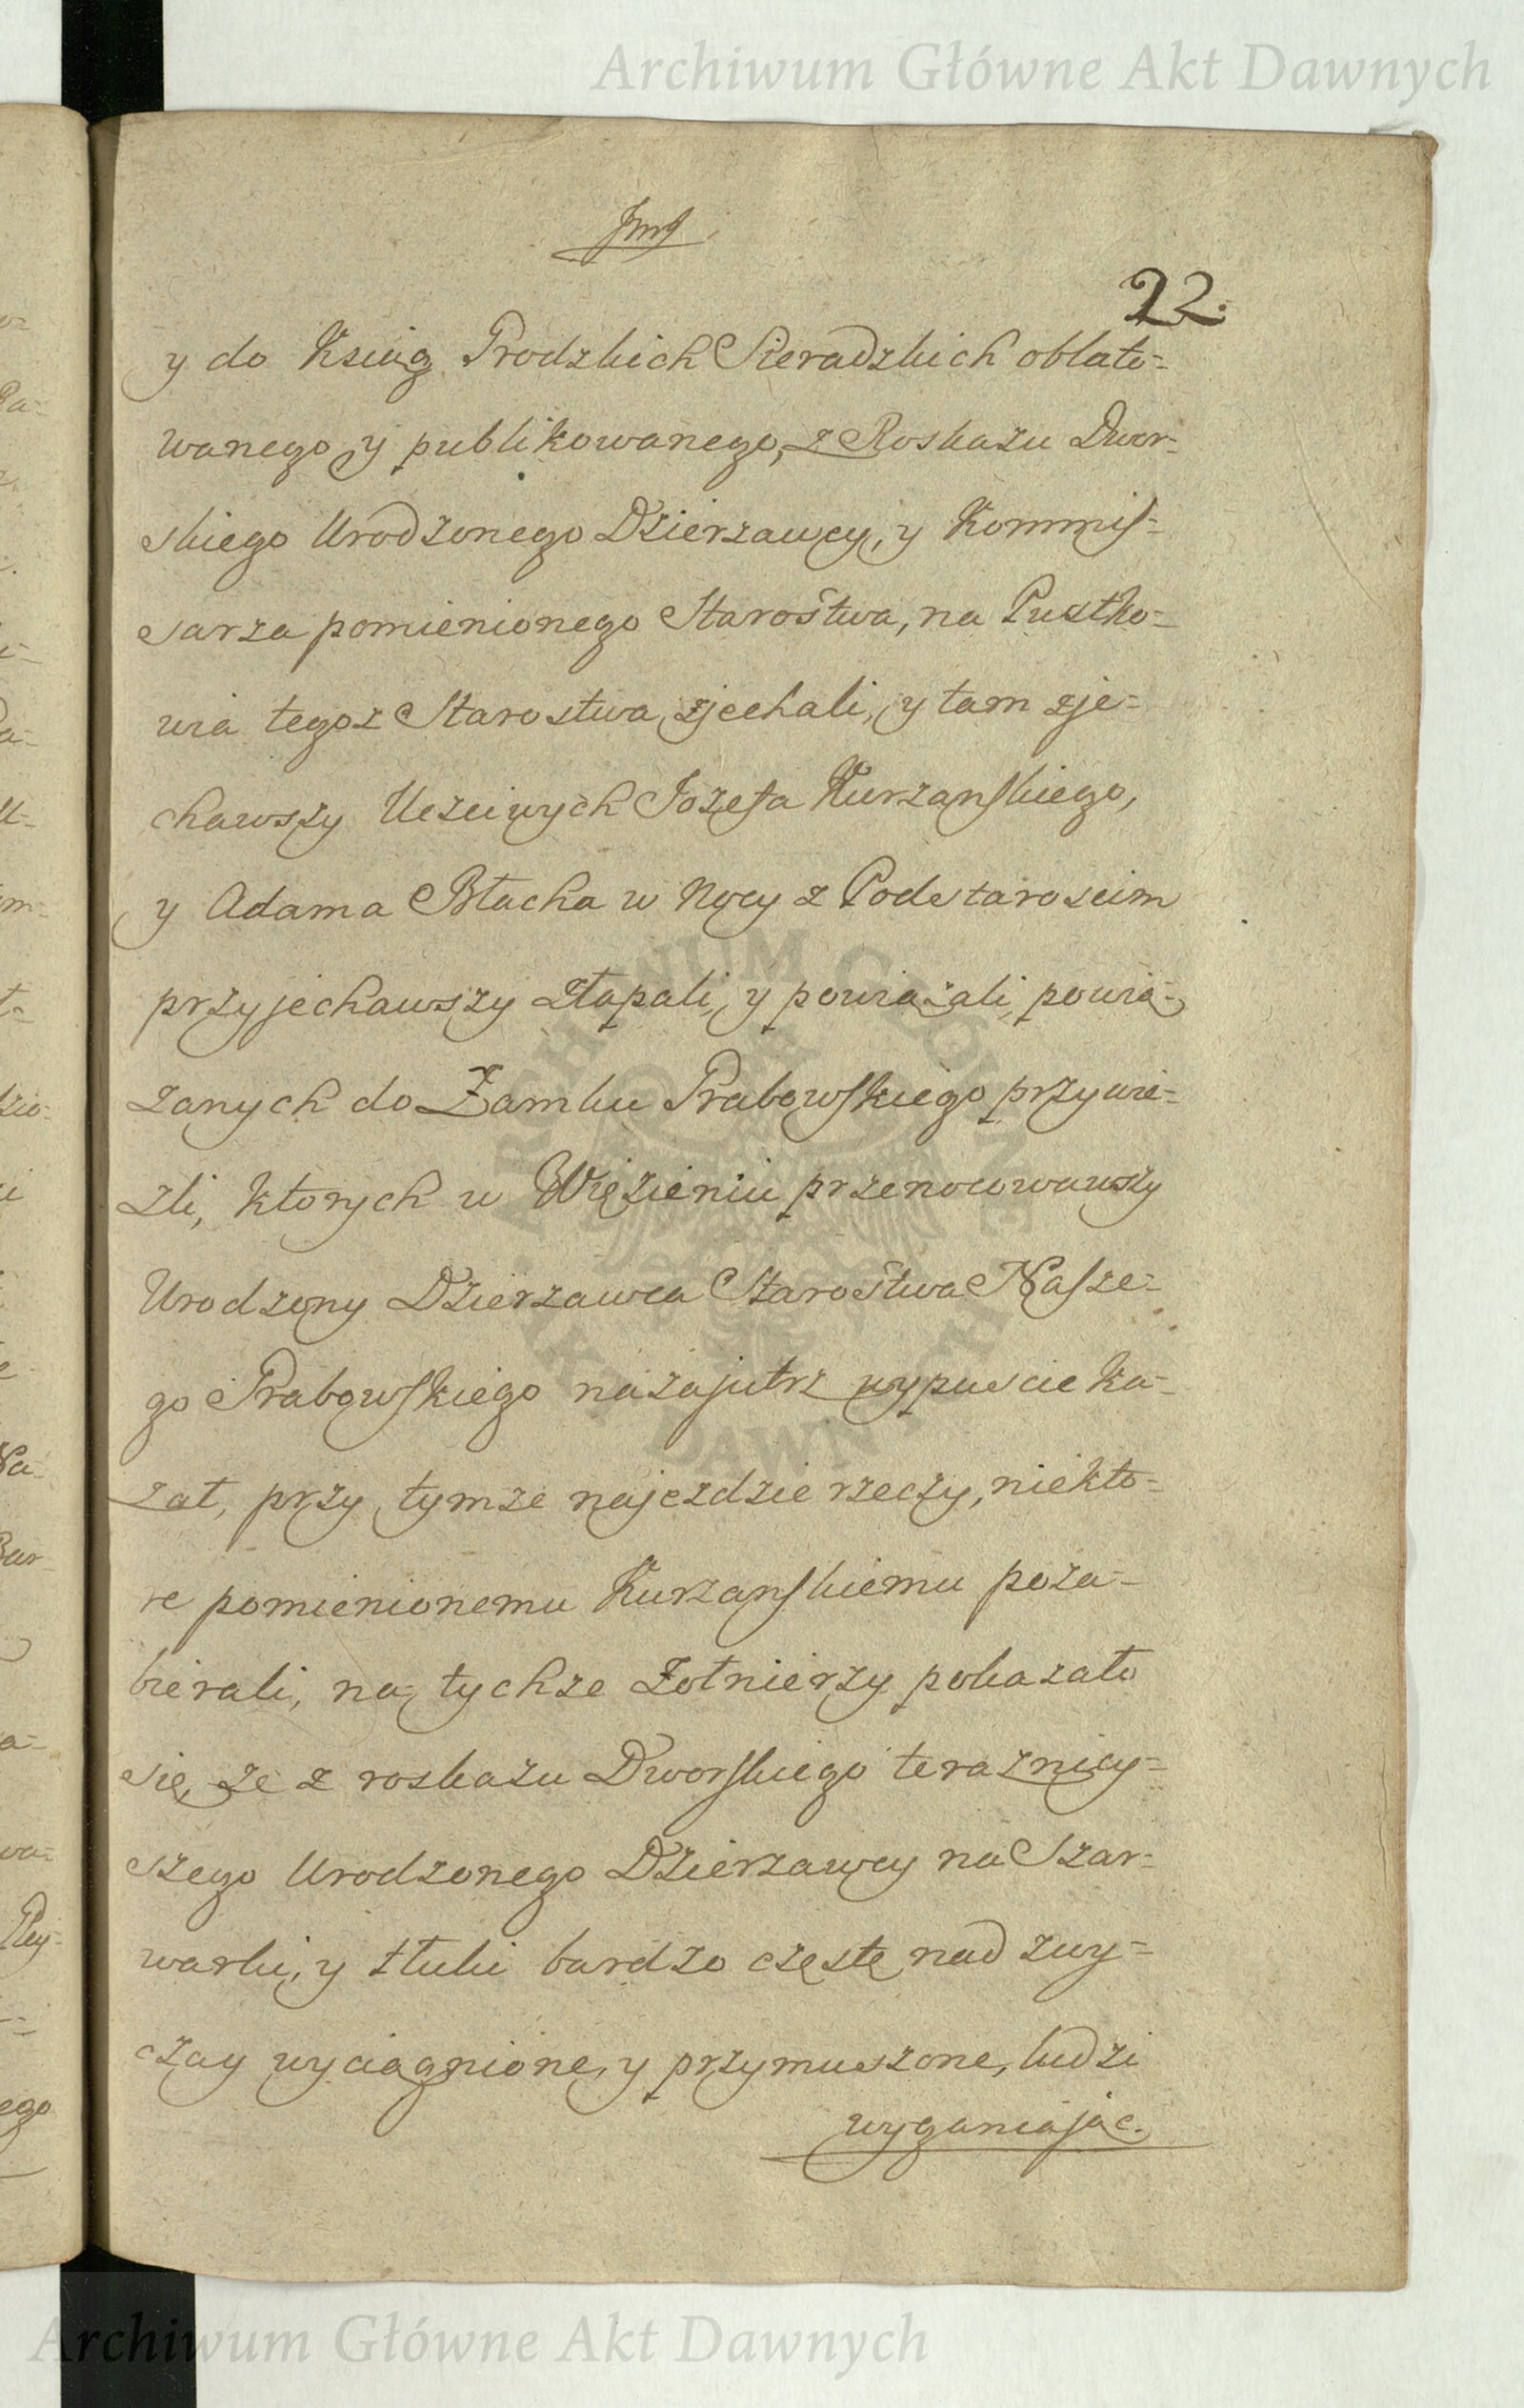 Archiwum Główne Akt Dawnych
22.
y do Xsiąg Grodzkich Sieradzkich oblato-
wanego, y publikowanego, z Roskazu Dwor-
skiego Urodzonego Dzierzawcy, y Kommis-
sarza pomienionego Starostwa, na Pustko-
wia tegoz Starostwa zjechali, y tam zje-
chawszy Uczciwych Jozefa Kurzanskiego,
y Adama Błacha w Nocy z Podstaroscim
przyjechawszy złapali, y powiązali, powią-
zanych do Zamku Grabowskiego przywie-
zli, ktorych w Więzieniu przenocowawszy
Urodzony Dzierzawca Starostwa Nasze-
go Grabowskiego nazajutrz wypuscic ka-
zał, przy tymze najezdzie rzeczy, niekto-
re pomienionemu Kurzanskiemu poza-
bierali, na tychze Zołnierzy pokazało
się, ze z roskazu Dworskiego teraznicy-
szego Urodzonego Dzierzawcy na Szar-
warki, y tłuki bardzo częste nad zwy-
czay wyciągnione, y przymuszone, ludzi
wyganiając.
ARCHIWUM GŁÓWNE
AKT DAWNYCH
Archiwum Główne Akt Dawnych